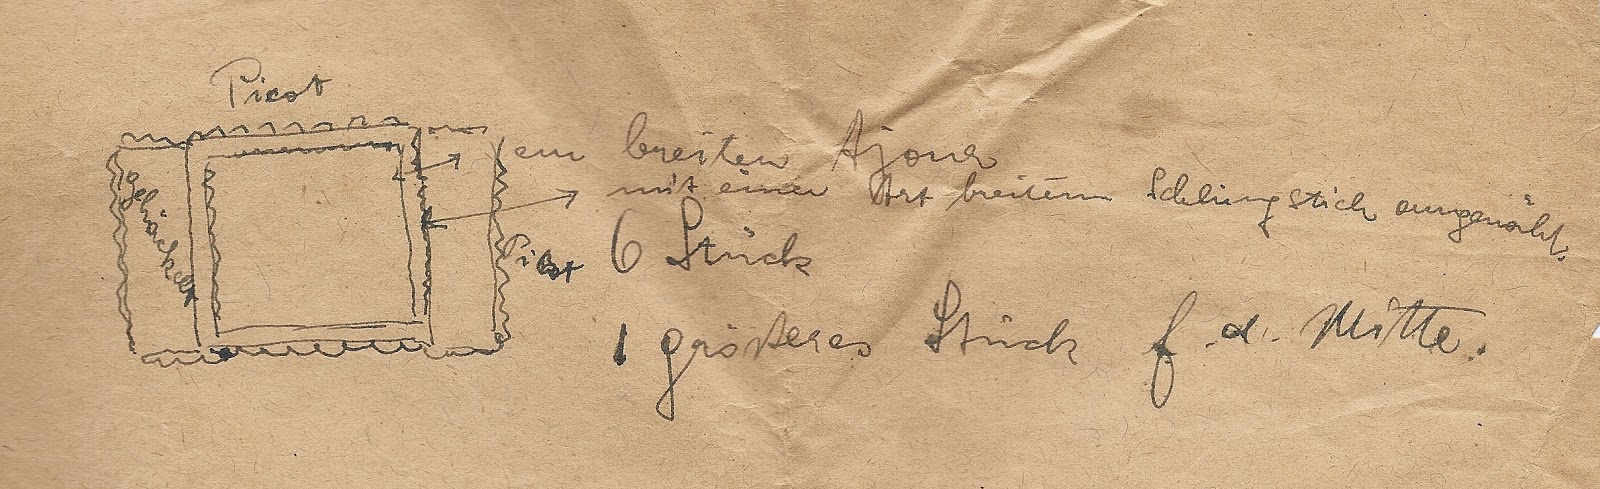 Picot
ein breiten Ajour
mit einer Art breitem Schlingstich umgenäht.
gehäckelt
Picot
6 Stück
1 größeres Stück f. d. Mitte.